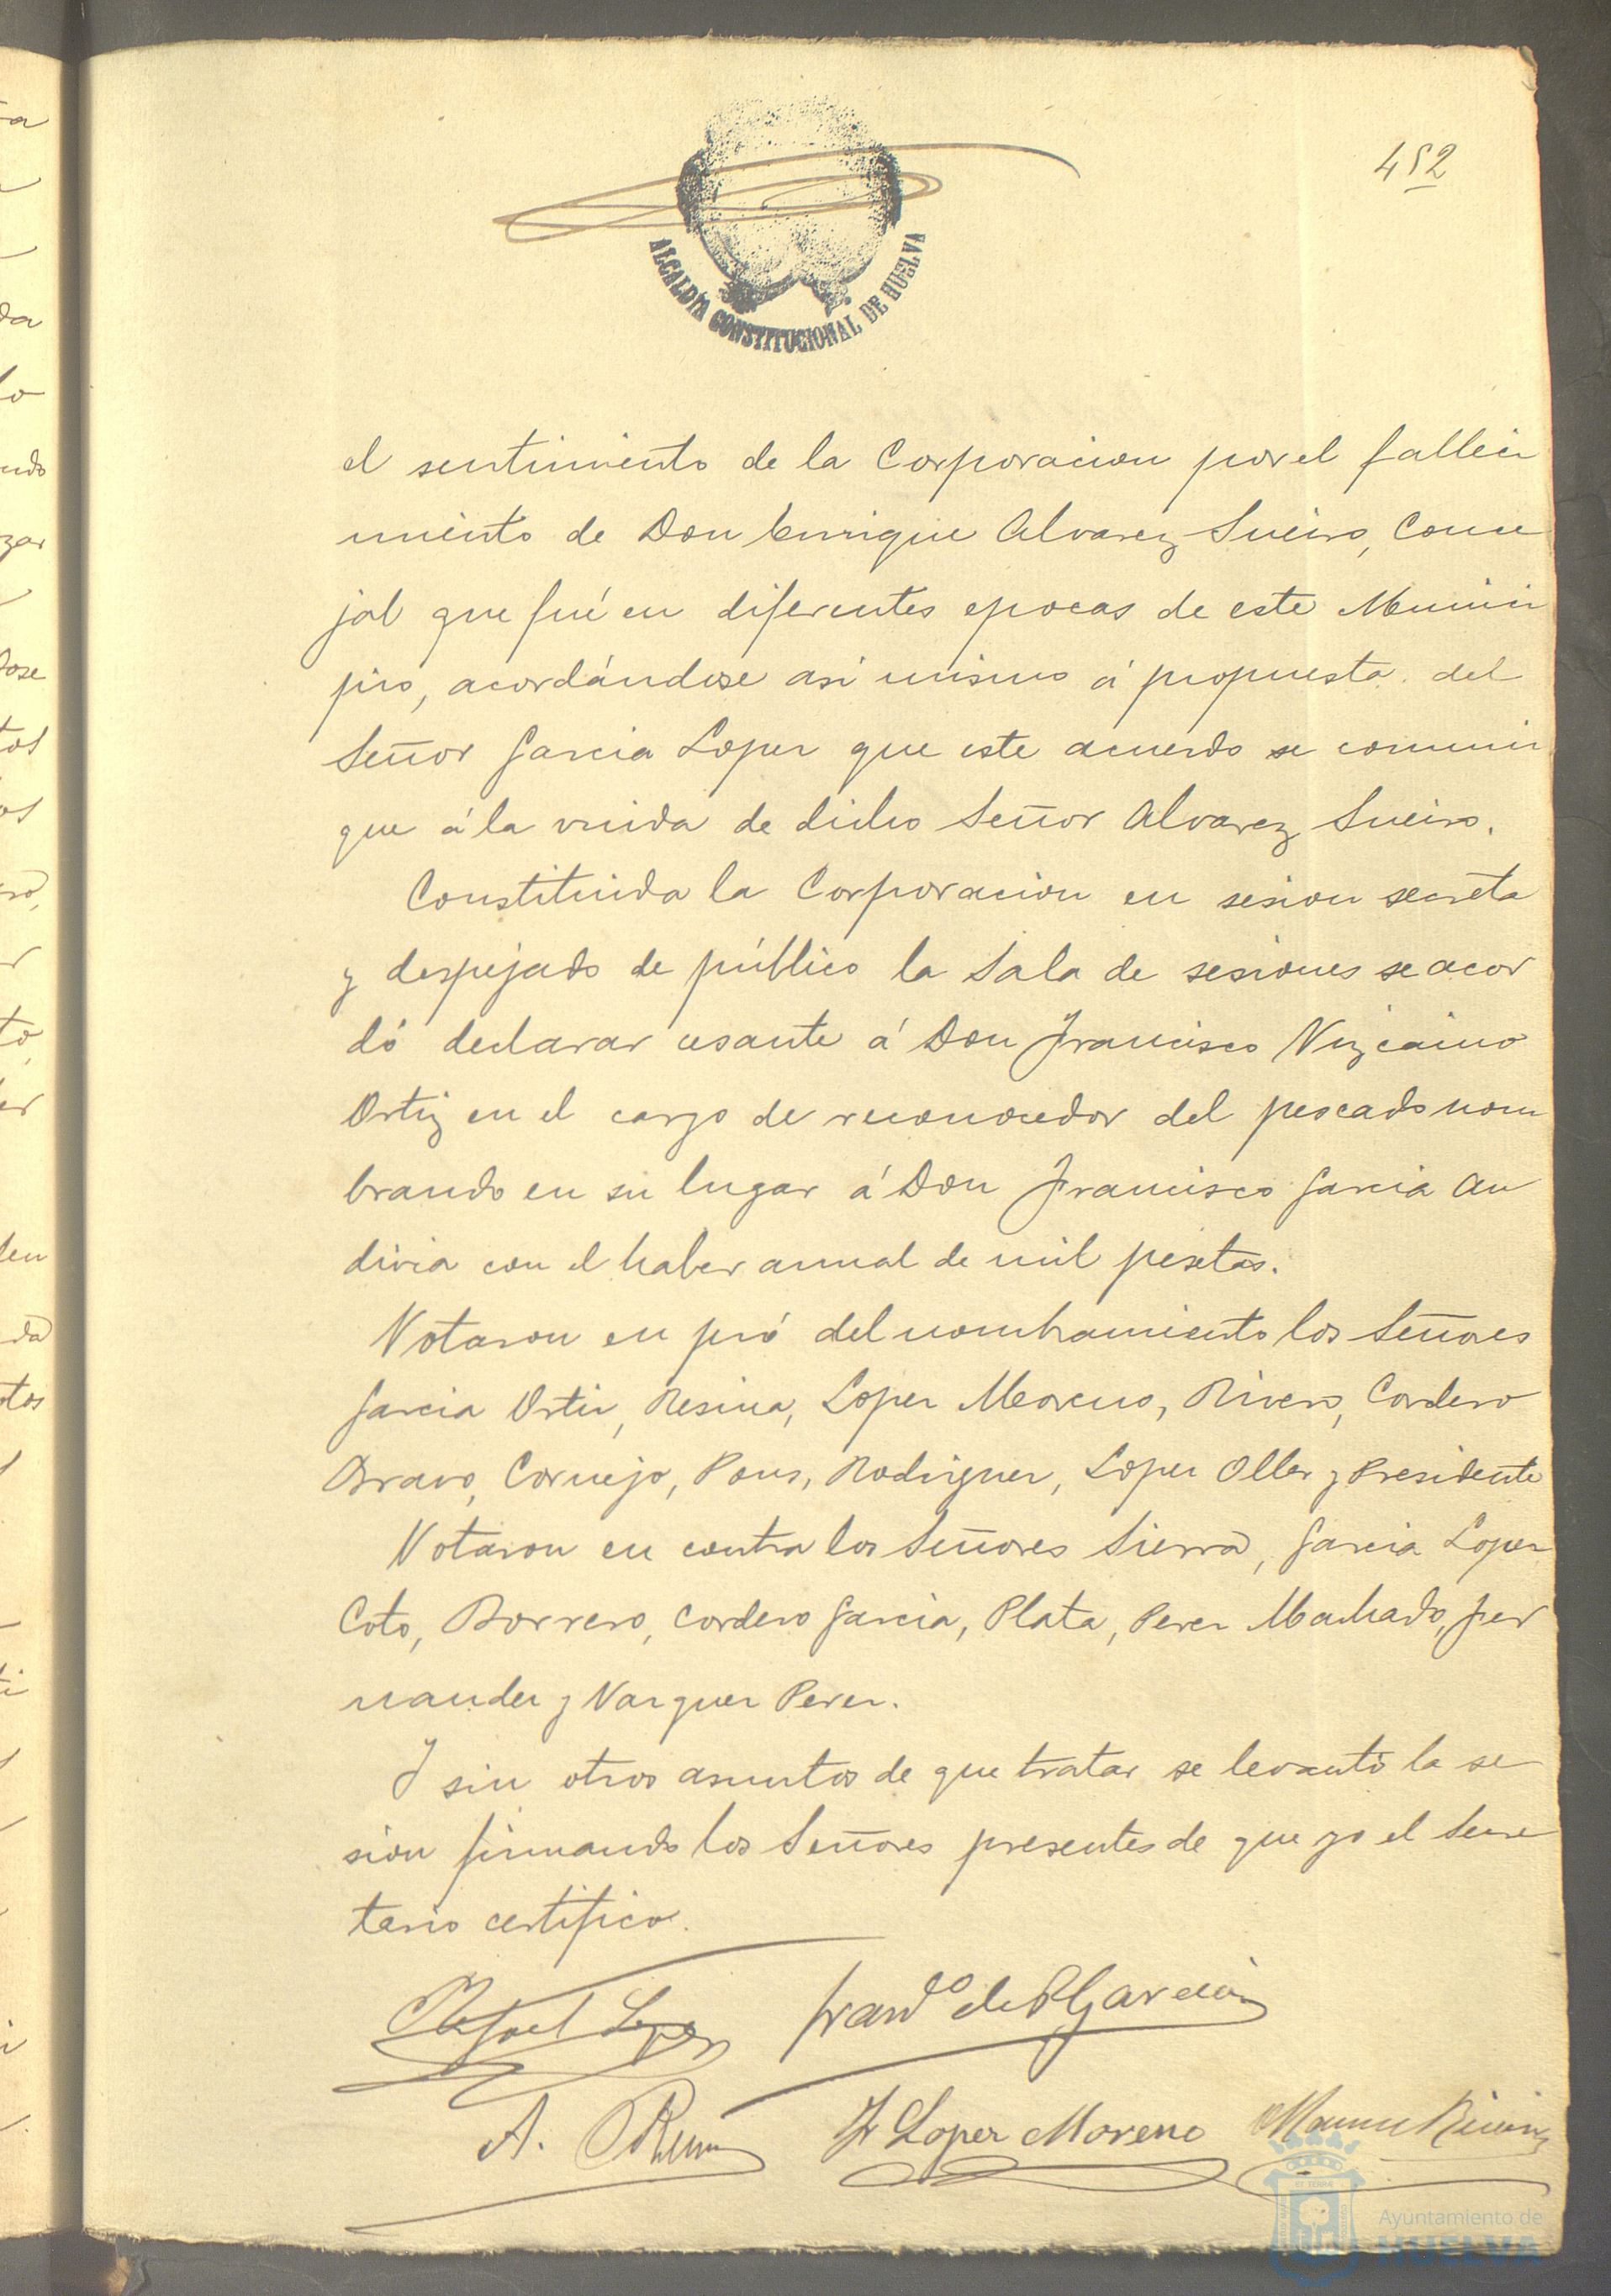 452
ALCALDÍA CONSTITUCIONAL DE HUELVA
el sentimiento de la Corporacion por el falleci
miento de Don Enrique Alvarez Sueiro, Conce
jal que fué en diferentes epocas de este Munici
pio, acordándose asi mismo á propuesta del
Señor Garcia Lopez que este acuerdo se comuni
que á la viuda de dicho Señor Alvarez Sueiro.
Constituida la Corporacion en sesion secreta
y despejado de público la Sala de sesiones se acor
dó declarar cesante á Don Francisco Vizcaino
Ortiz en el cargo de reconocedor del pescado nom
brando en su lugar á Don Francisco Garcia An
divia con el haber annual de mil pesetas.
Votaron en pró del nombramiento los Señores
Garcia Ortiz, Resina, Lopez Moreno, Rivero, Cordero
Bravo, Cornejo, Pons, Rodriguez, Lopez Oller y Presidente
Votaron en contra los Señores Sierra, Garcia Lopez
Coto, Borrero, Cordero Garcia, Plata, Perez Machado, Fer
nandez y Vazquez Perez.
Y sin otros asuntos de que tratar se levantó la se
sion firmando los Señores presentes de que yo el Secre
tario certifico.
Rafael Lopez Fran.co de P Garcia
A. Lopez Moreno Manuel
Ayuntamiento de
HUELVA